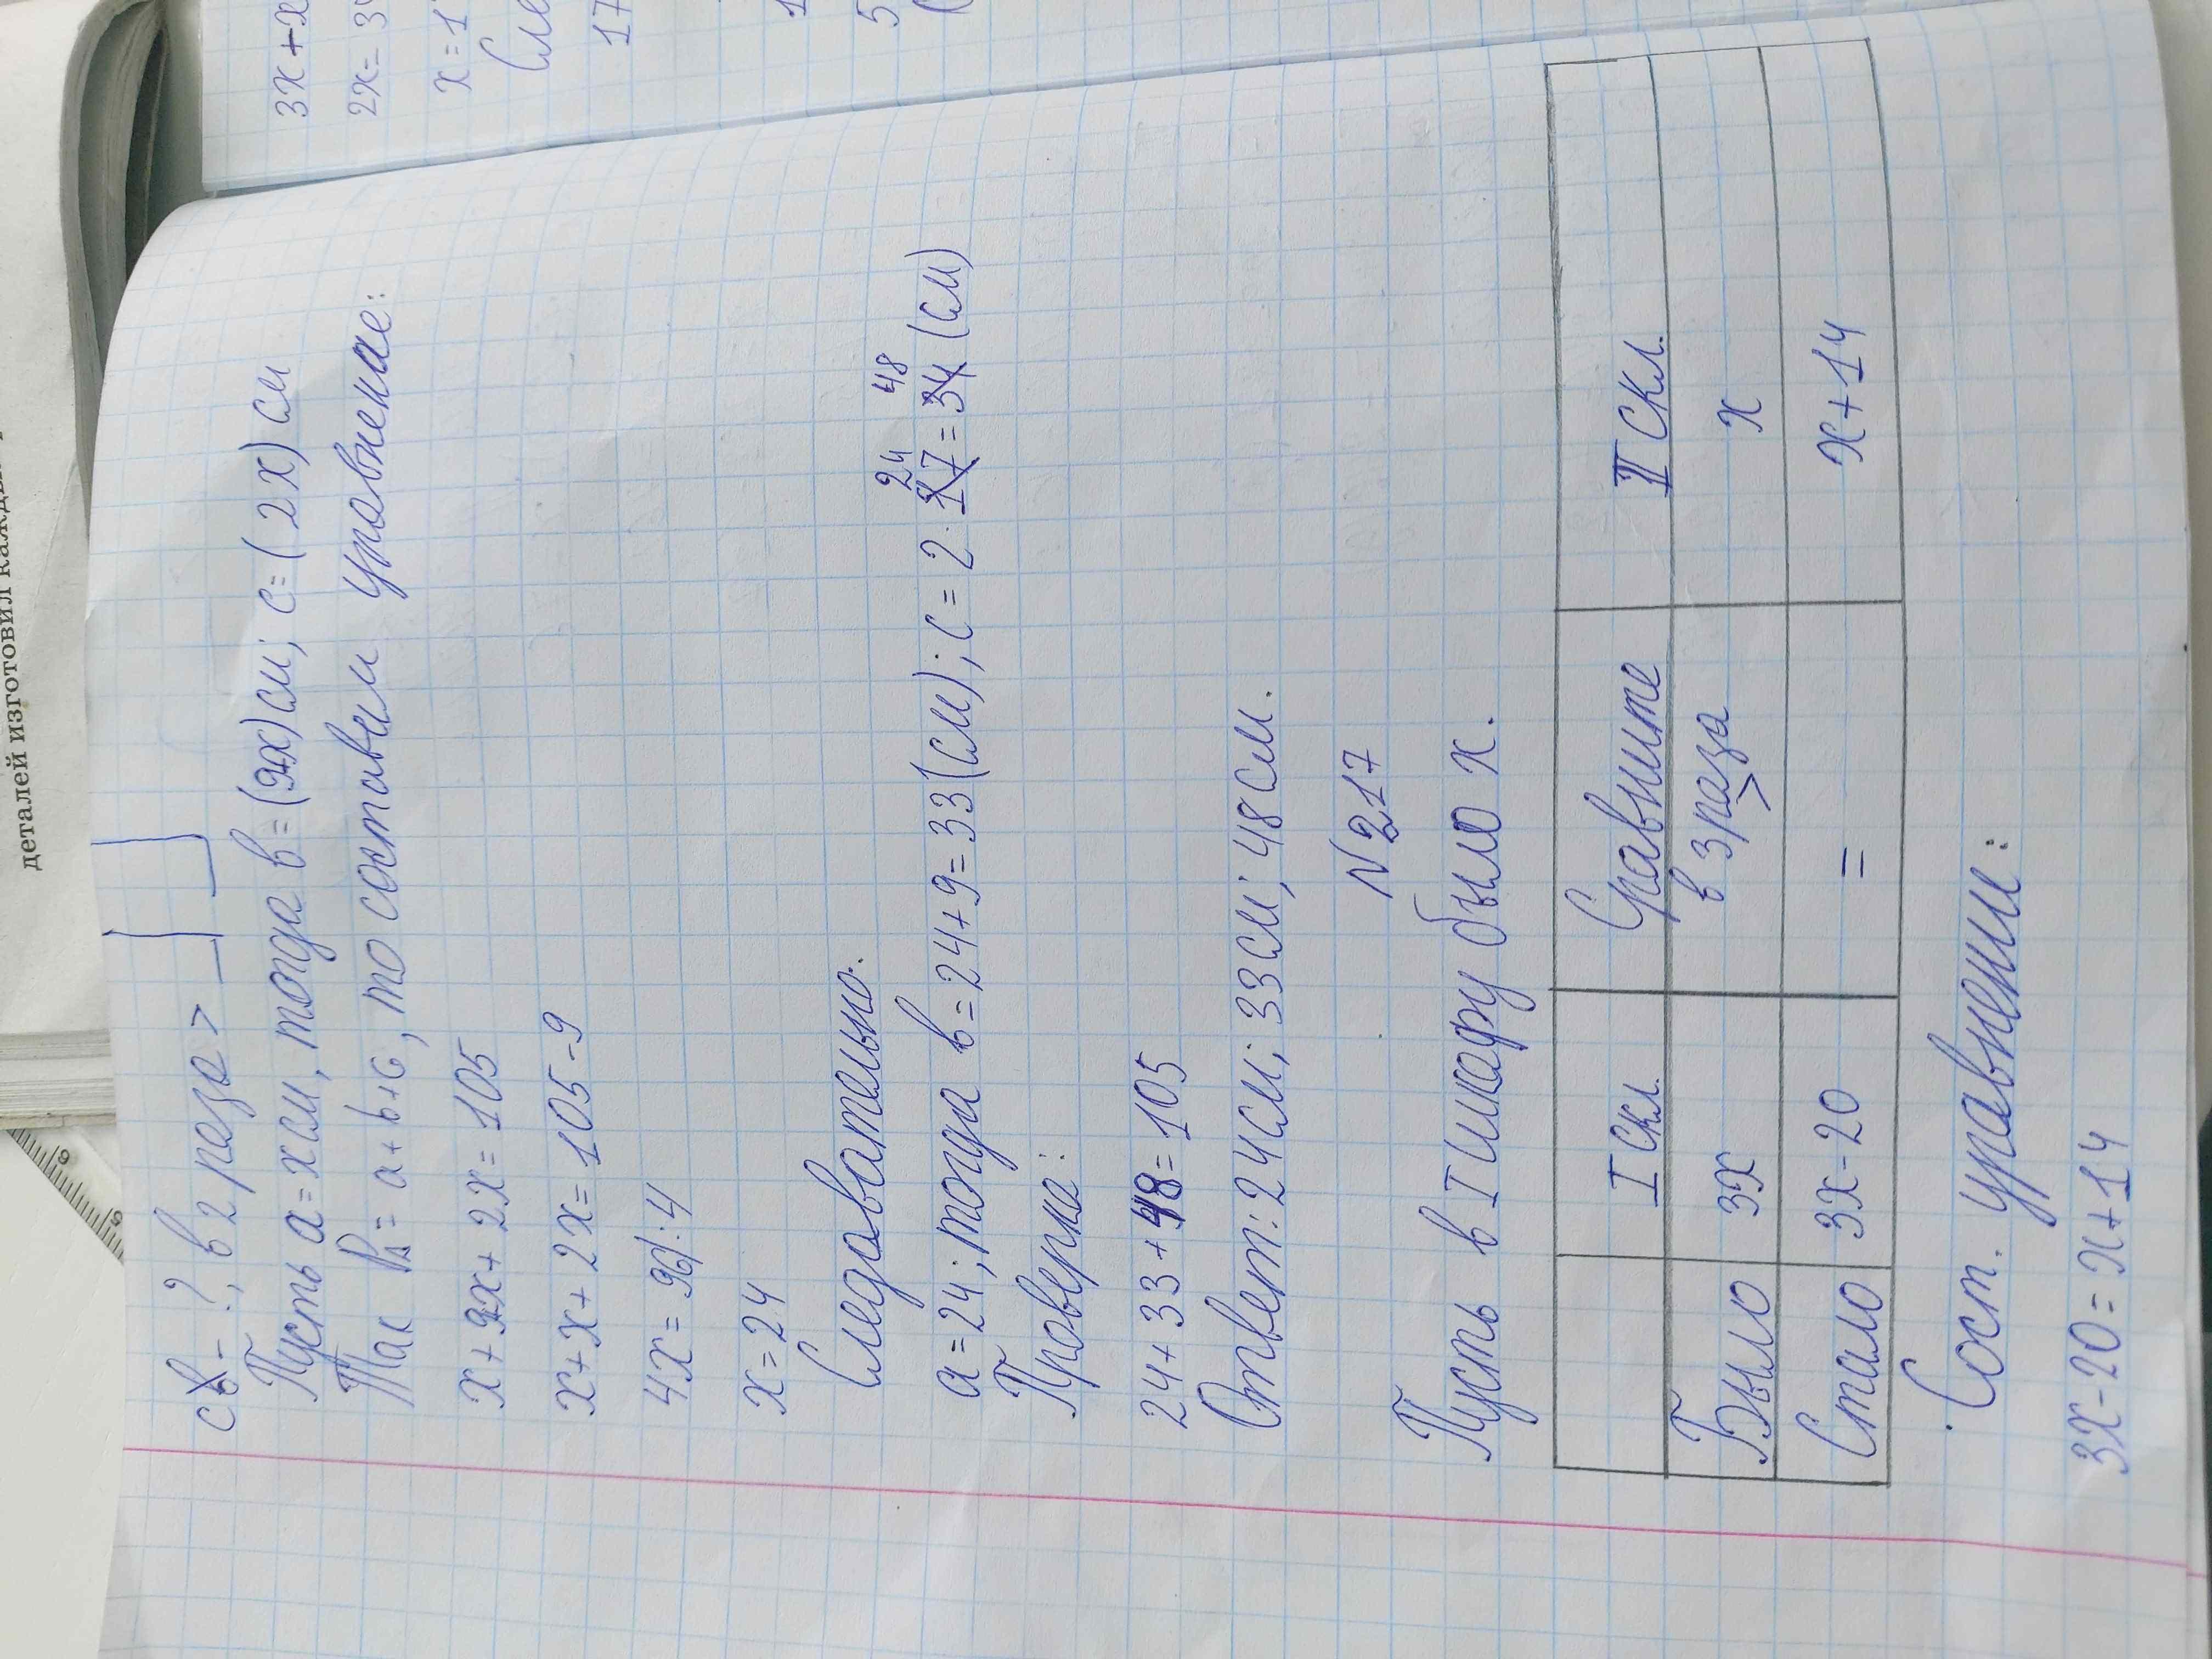 деталей изготовил кажды
3x+x
2x=34
x=1
Сле
17
1
5
c - ?, в 2 раза >
Пусть a = x см, тогда b = (9+x) см; c = (2x) см
Так P = a+b+c, то составим уровнение:
x+9+x+2x=105
x+x+2x=105-9
4x=96|:4
x=24
Следовательно:
24 48
a=24; тогда b=24+9=33(см); c=2·17=34 (см)
Проверка:
24+33+48=105
Ответ: 24см; 33см; 48см.
N217
Пусть в I шкафу было x.
I скл. Сравните II скл.
Было 3x в 3раза > x
Стало 3x-20 = x+14
Сост. уравнении:
3x-20=x+14